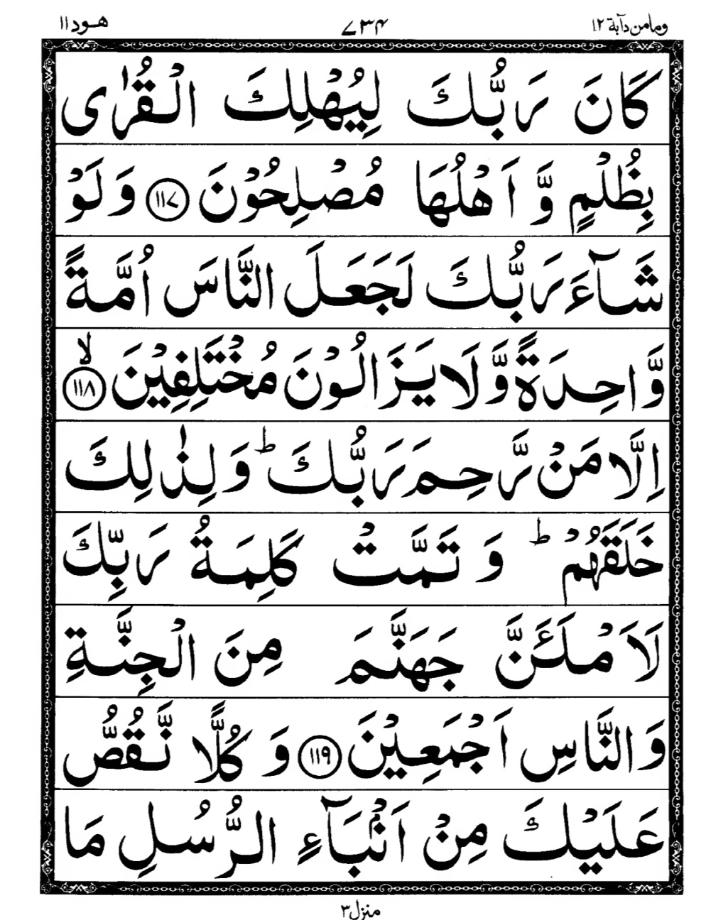 ومامن دآبة ١٢ ٧٣٤ هود ١١
كَانَ رَبُّكَ لِيُهْلِكَ الْقُرٰى
بِظُلْمٍ وَّ اَهْلُهَا مُصْلِحُوْنَ ﴿١١٧﴾ وَ لَوْ
شَآءَ رَبُّكَ لَجَعَلَ النَّاسَ اُمَّةً
وَّاحِدَةً وَّ لَا يَزَالُوْنَ مُخْتَلِفِيْنَ ﴿١١٨﴾ۙ
اِلَّا مَنْ رَّحِمَ رَبُّكَ ؕ وَ لِذٰلِكَ
خَلَقَهُمْ ؕ وَ تَمَّتْ كَلِمَةُ رَبِّكَ
لَاَمْلَئَنَّ جَهَنَّمَ مِنَ الْجِنَّةِ
وَ النَّاسِ اَجْمَعِيْنَ ﴿١١٩﴾ وَ كُلًّا نَّقُصُّ
عَلَيْكَ مِنْ اَنْۢبَآءِ الرُّسُلِ مَا
منزل ٣